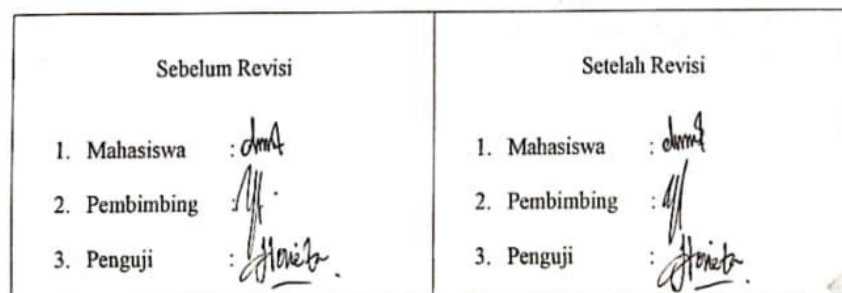 Sebelum Revisi
1. Mahasiswa :
2. Pembimbing :
3. Penguji :
Setelah Revisi
1. Mahasiswa :
2. Pembimbing :
3. Penguji :